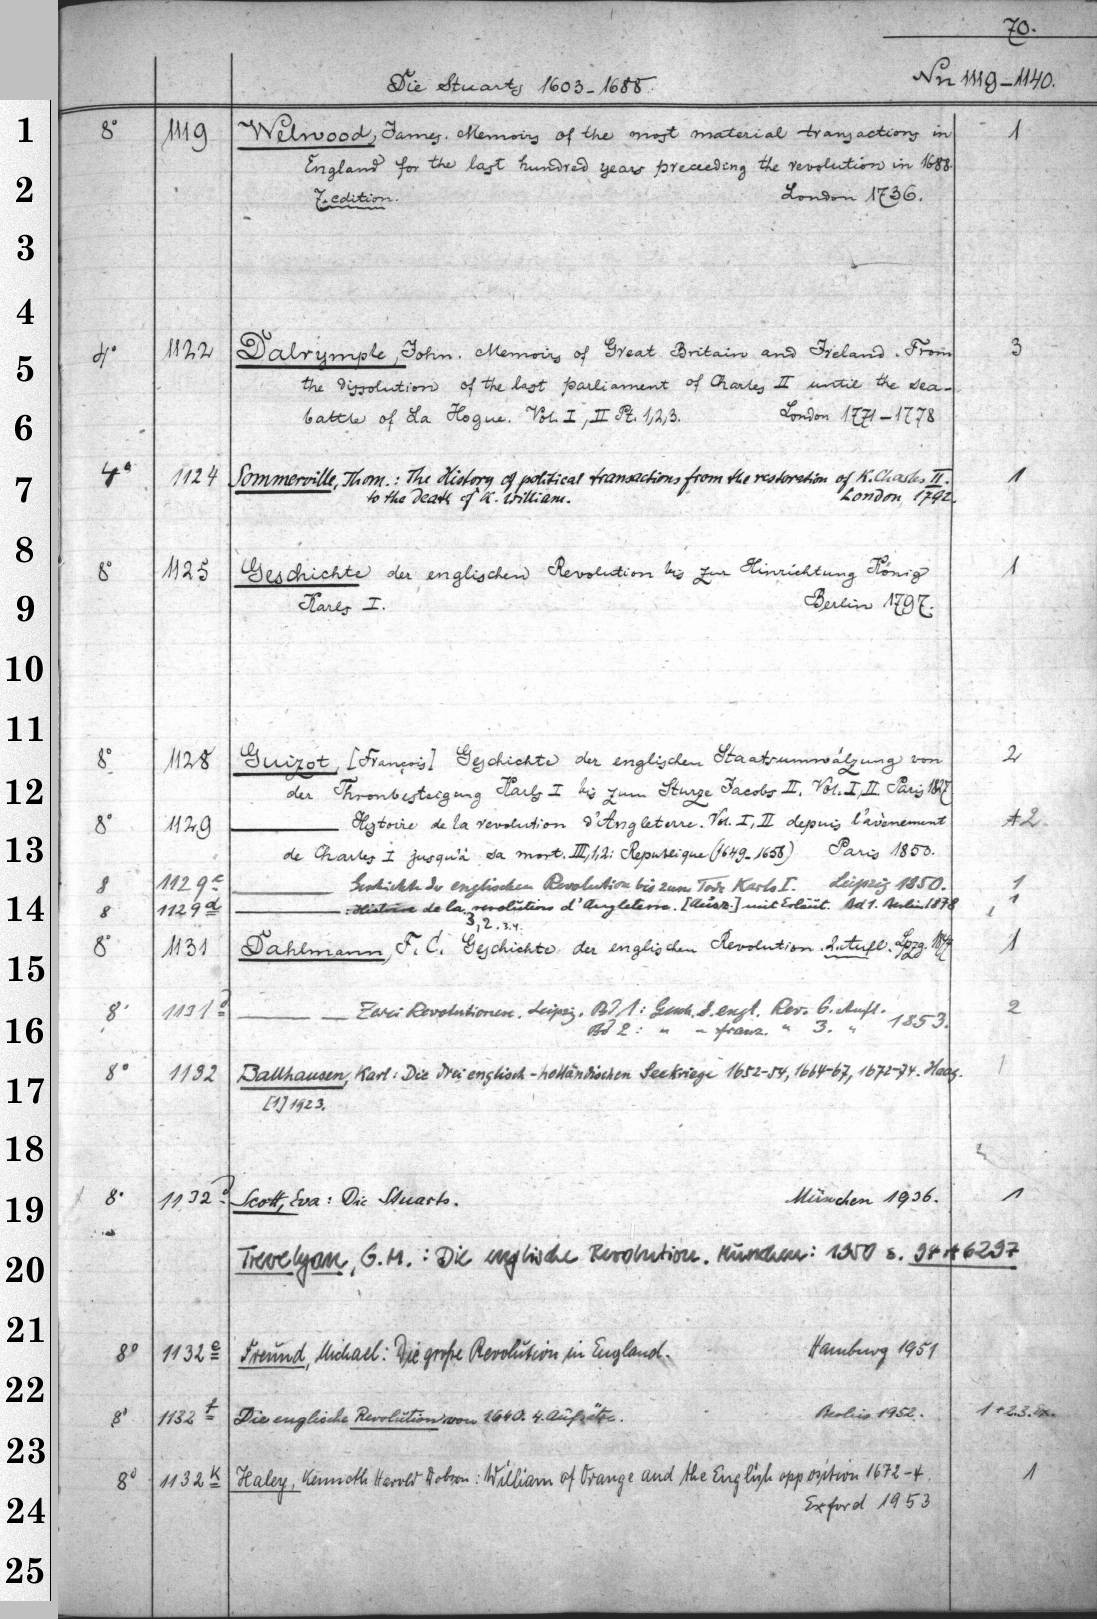 70.
Die Stuarts 1603-1688.
Nrn 1119-1140.
1
8° 1119 Welwood, James. Memoirs of the most material transactions in 1
England for the last hundred years preceeding the revolution in 1688
2
7. edition. London 1736.
3
4
5
4° 1122 Dalrymple, John. Memoirs of Great Britain and Ireland. From 3
the dissolution of the last parliament of Charles II until the sea-
6
battle of La Hogue. Vol. I, II Pt. 1,2,3. London 1771-1778
7
4° 1124 Sommerville, Thom.: The History of political transactions from the restoration of K. Charles II. 1
to the Death of K. William. London, 1792.
8
8° 1125 Geschichte der englischen Revolution bis zur Hinrichtung König 1
9
Karls I. Berlin 1797.
10
11
8° 1128 Guizot, [François] Geschichte der englischen Staatsumwälzung von 2
12
der Thronbesteigung Karls I bis zum Sturze Jacobs II. Vol. I, II Paris 1827
8° 1129 Histoire de la revolution d'Angleterre. Vol. I, II depuis l'avènement 2
13
de Charles I jusqu'à sa mort. III,1,2: Republique (1649-1658) Paris 1850.
8 1129c Geschichte der englischen Revolution bis zum Tode Karls I. Leipzig 1850. 1
14
8 1129d Histoire de la revolution d'Angleterre. [Ausz.] mit Erläut. Bd 1. Berlin 1878 1
3, 2. 3.4.
8° 1131 Dahlmann, F. C. Geschichte der englischen Revolution. 2. Aufl. Lpzg. 1844 1
15
8° 1131a Zwei Revolutionen. Leipzig. Bd 1: Gesch. d. engl. Rev. 6. Aufl. 2
16
Bd 2: " " franz. " 3. " 1853.
8° 1132 Ballhausen, Karl: Die drei englisch-holländischen Seekriege 1652-54, 1664-67, 1672-74. Haag. 1
17
[1] 1923.
18
19
8° 1132a Scott, Eva: Die Stuarts. München 1936. 1
20
Trevelyan, G. M.: Die englische Revolution. München: 1950 s. 94 A 6297
21
8° 1132e Freund, Michael: Die große Revolution in England. Hamburg 1951
22
8° 1132f Die englische Revolution von 1640. 4 Aufsätze. Berlin 1952. 1+2.3. Ex.
23
8° 1132k Haley, Kenneth Harold Dobson: William of Orange and the English opposition 1672-4. 1
24
Exford 1953
25